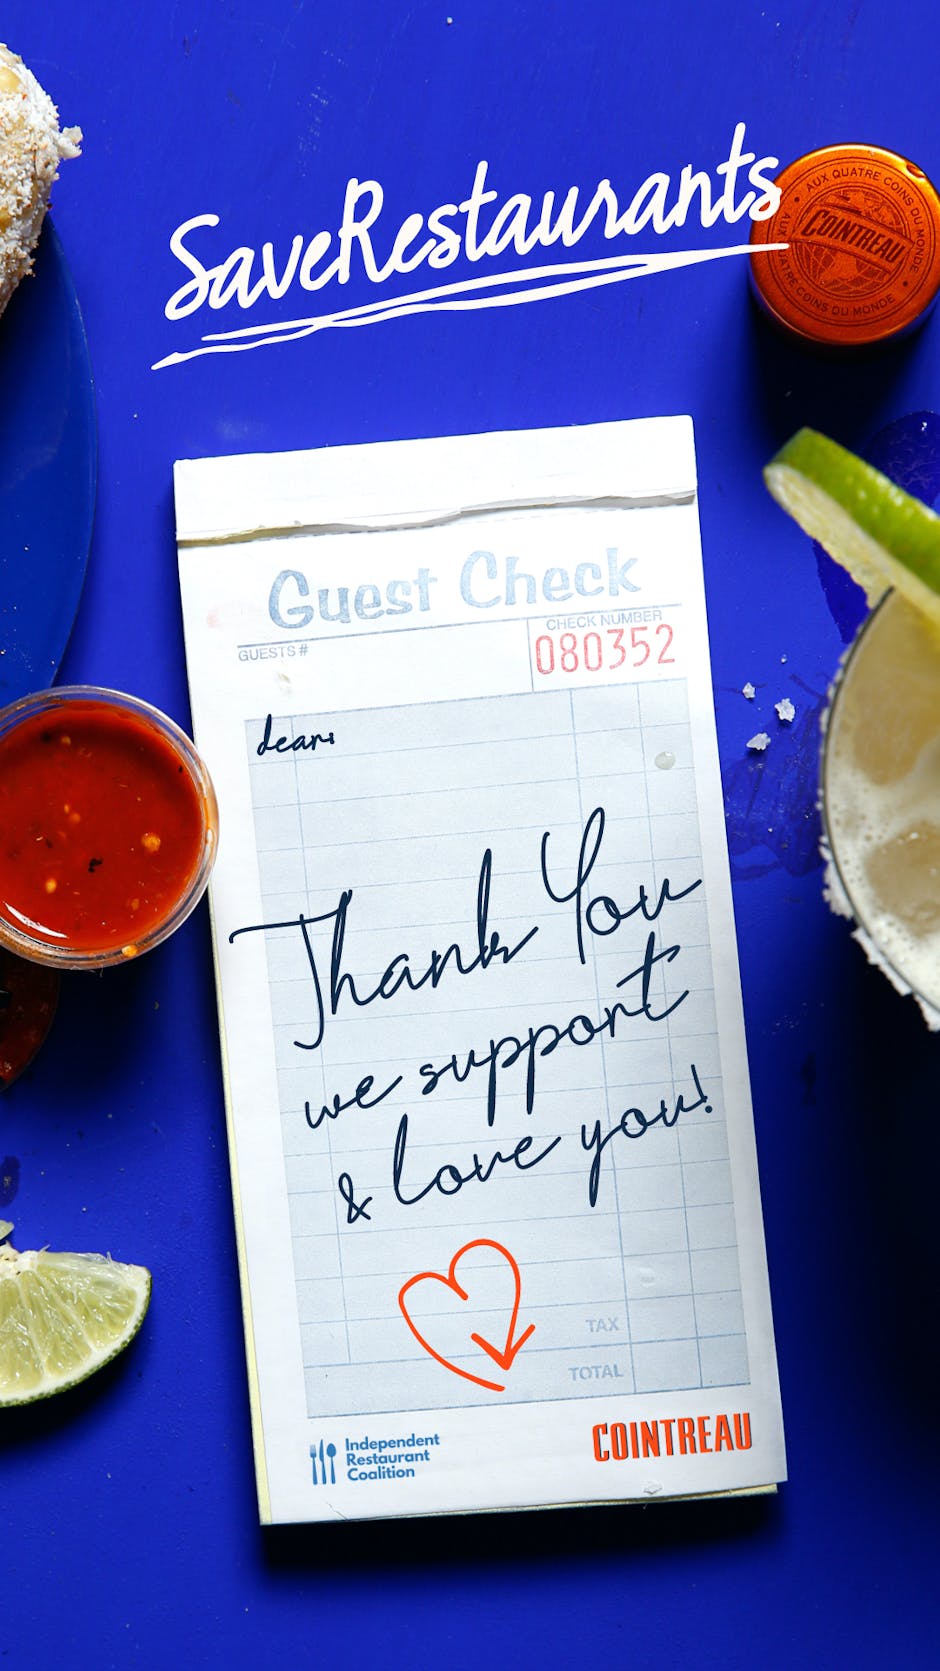 SaveRestaurants
AUX QUATRE COINS DU MONDE
COINTREAU
AUX QUATRE COINS DU MONDE
Guest Check
GUESTS #
CHECK NUMBER
080352
dear:
Thank You
we support
& love you!
TAX
TOTAL
Independent
Restaurant
Coalition
COINTREAU